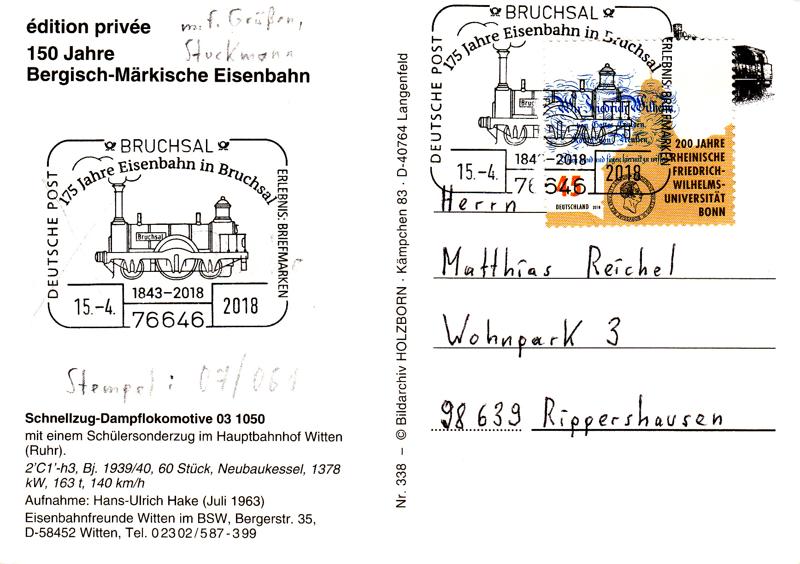 édition privée
m. f. Grüßen,
150 Jahre
Stuckmann
Bergisch-Märkische Eisenbahn
BRUCHSAL
175 Jahre Eisenbahn in Bruchsal
DEUTSCHE POST
ERLEBNIS: BRIEFMARKEN
Bruchsal
15.–4.
1843–2018
2018
76646
Stempel: 07/061
Schnellzug-Dampflokomotive 03 1050
mit einem Schülersonderzug im Hauptbahnhof Witten
(Ruhr).
2'C1'-h3, Bj. 1939/40, 60 Stück, Neubaukessel, 1378
kW, 163 t, 140 km/h
Aufnahme: Hans-Ulrich Hake (Juli 1963)
Eisenbahnfreunde Witten im BSW, Bergerstr. 35,
D-58452 Witten, Tel. 02302/587-399
Nr. 338 – © Bildarchiv HOLZBORN · Kämpchen 83 · D-40764 Langenfeld
BRUCHSAL
175 Jahre Eisenbahn in Bruchsal
DEUTSCHE POST
ERLEBNIS: BRIEFMARKEN
Wir Friedrich Wilhelm
15.–4.
1843–2018
2018
76646
45
DEUTSCHLAND 2018
200 JAHRE
RHEINISCHE
FRIEDRICH-
WILHELMS-
UNIVERSITÄT
BONN
Herrn
Matthias Reichel
Wohnpark 3
98639 Rippershausen